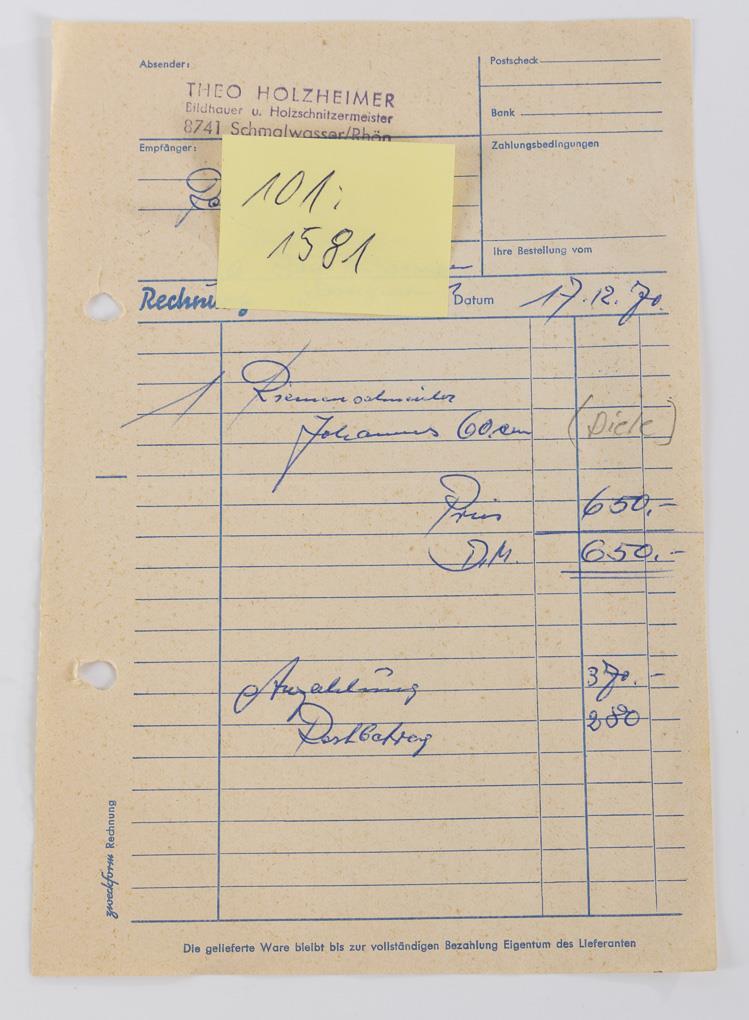 Absender:
THEO HOLZHEIMER
Bildhauer u. Holzschnitzermeister
8741 Schmalwasser/Rhön
Postscheck
Bank
Empfänger:
Zahlungsbedingungen
101:
1581
Ihre Bestellung vom
Rechnung
Datum 17.12.70.
1 Riemenschneider
Johannes 60 cm (Diele)
Preis 650.-
D.M. 650.-
Anzahlung 370.-
Restbetrag 280
zweckform Rechnung
Die gelieferte Ware bleibt bis zur vollständigen Bezahlung Eigentum des Lieferanten